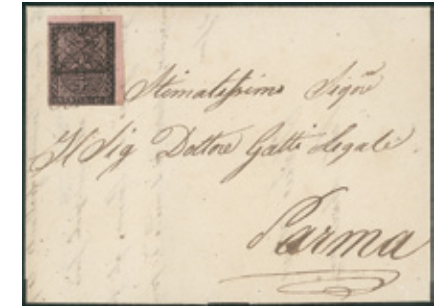 Stimatissimo Sigre
Il Sig Dottore Gatti Legale
Parma